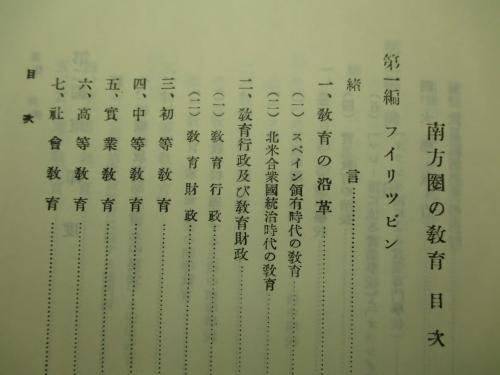 南方圏の敎育 目次
第一編 フイリツピン
緖言
一、敎育の沿革
(一) スペイン領有時代の敎育
(二) 北米合衆國統治時代の敎育
二、敎育行政及び敎育財政
(一) 敎育行政
(二) 敎育財政
三、初等敎育
四、中等敎育
五、實業敎育
六、高等敎育
七、社會敎育
目次